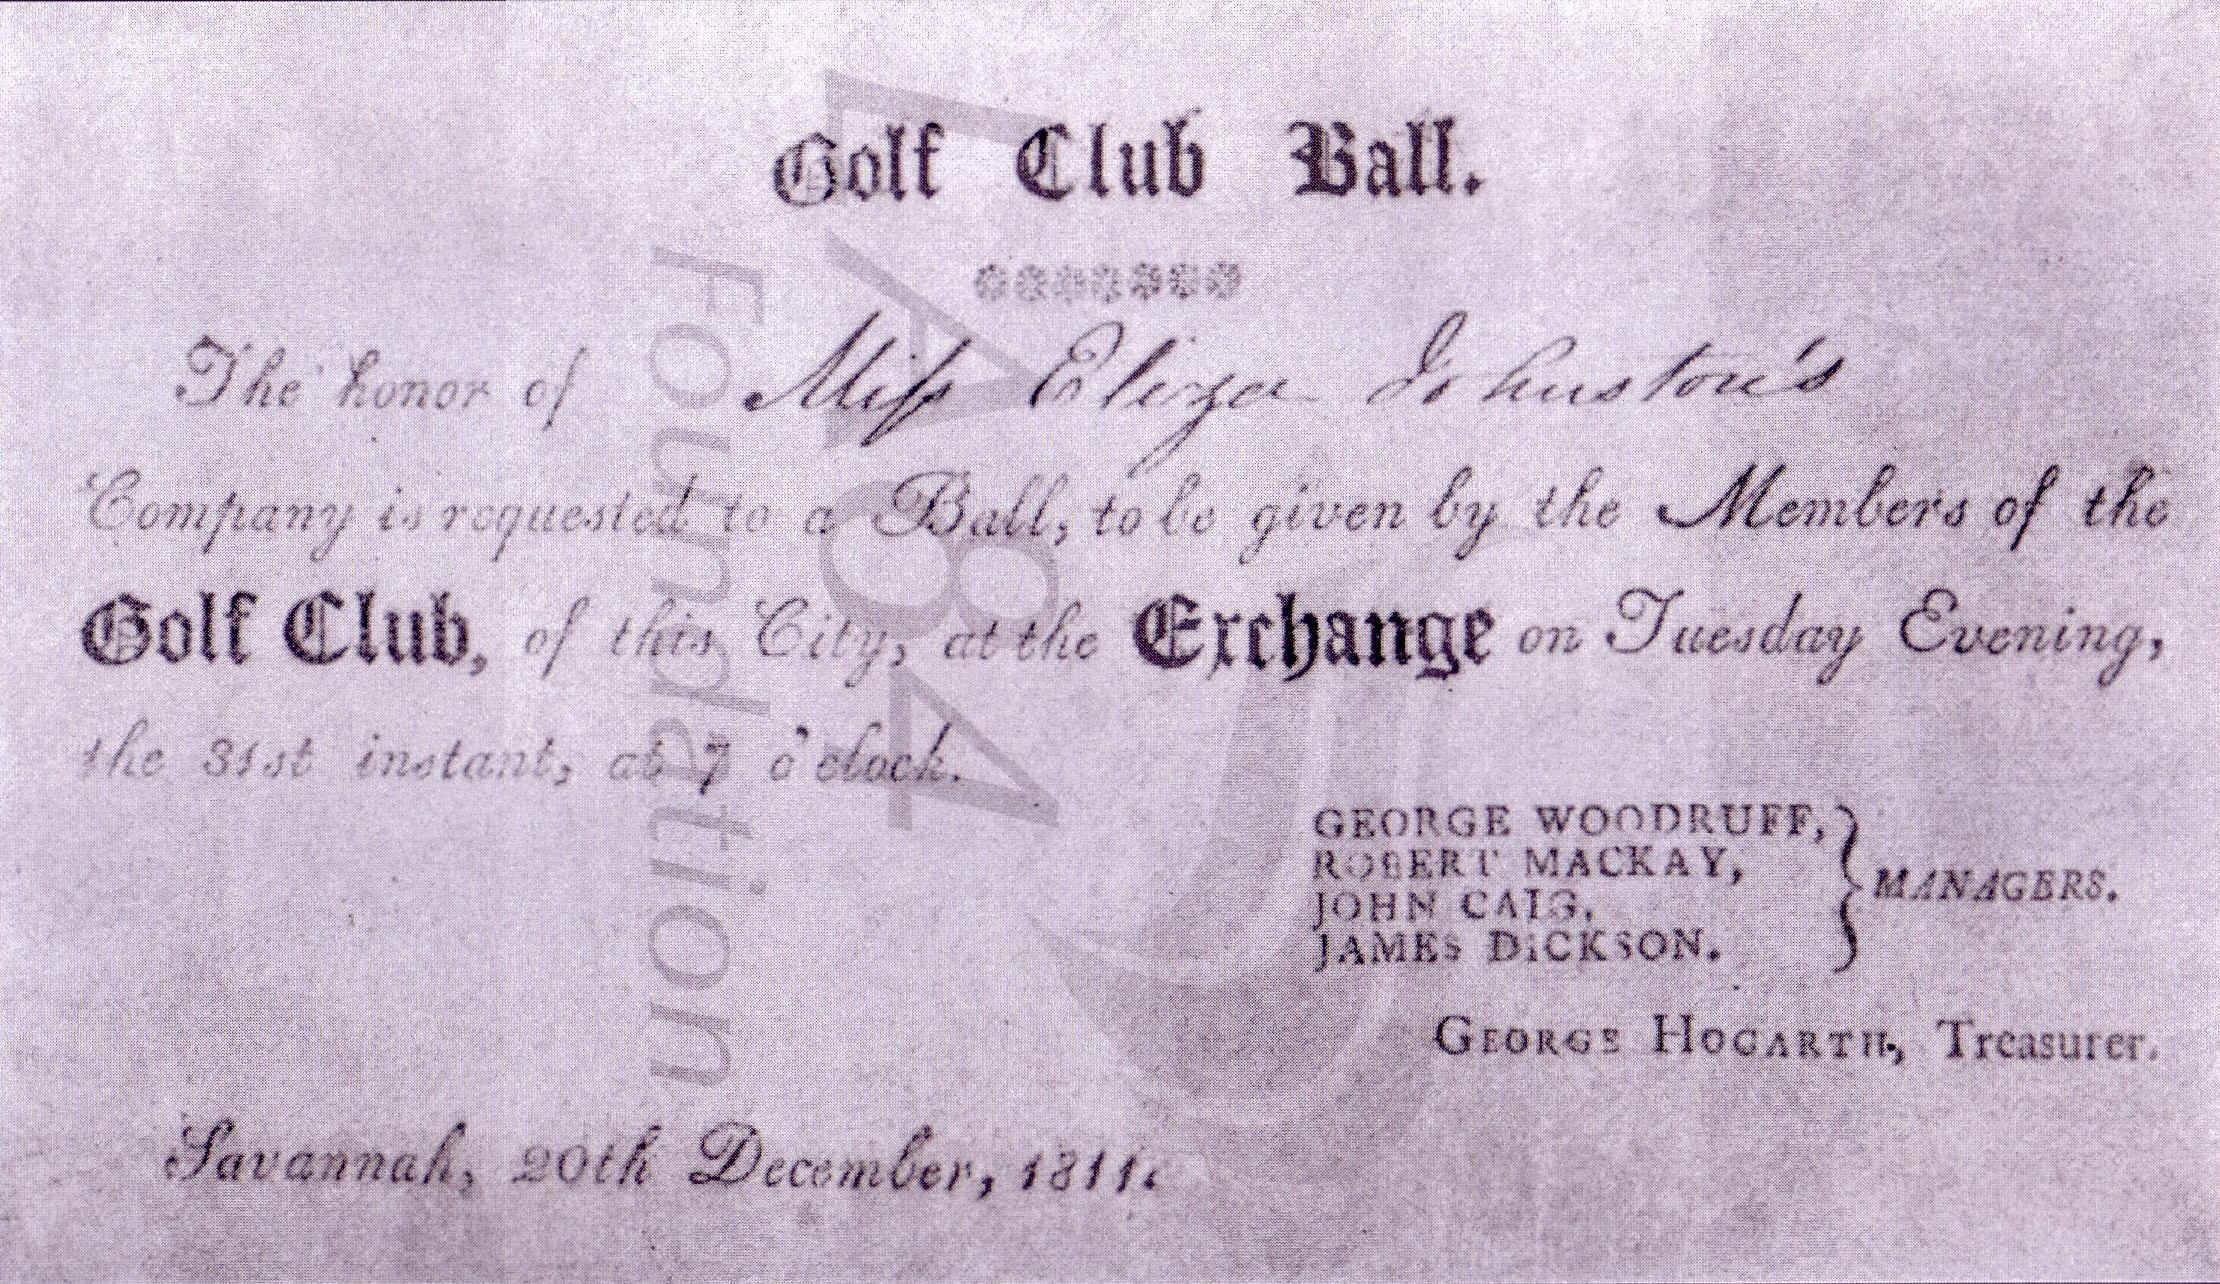 Golf Club Ball.
The honor of Miss Eliza Johnston's
Company is requested to a Ball, to be given by the Members of the
Golf Club, of this City, at the Exchange on Tuesday Evening,
the 31st instant, at 7 o'clock.
GEORGE WOODRUFF,
ROBERT MACKAY,
JOHN CAIG,
JAMES DICKSON.
MANAGERS.
GEORGE HOGARTH, Treasurer.
Savannah, 20th December, 1811.
LA84
Foundation